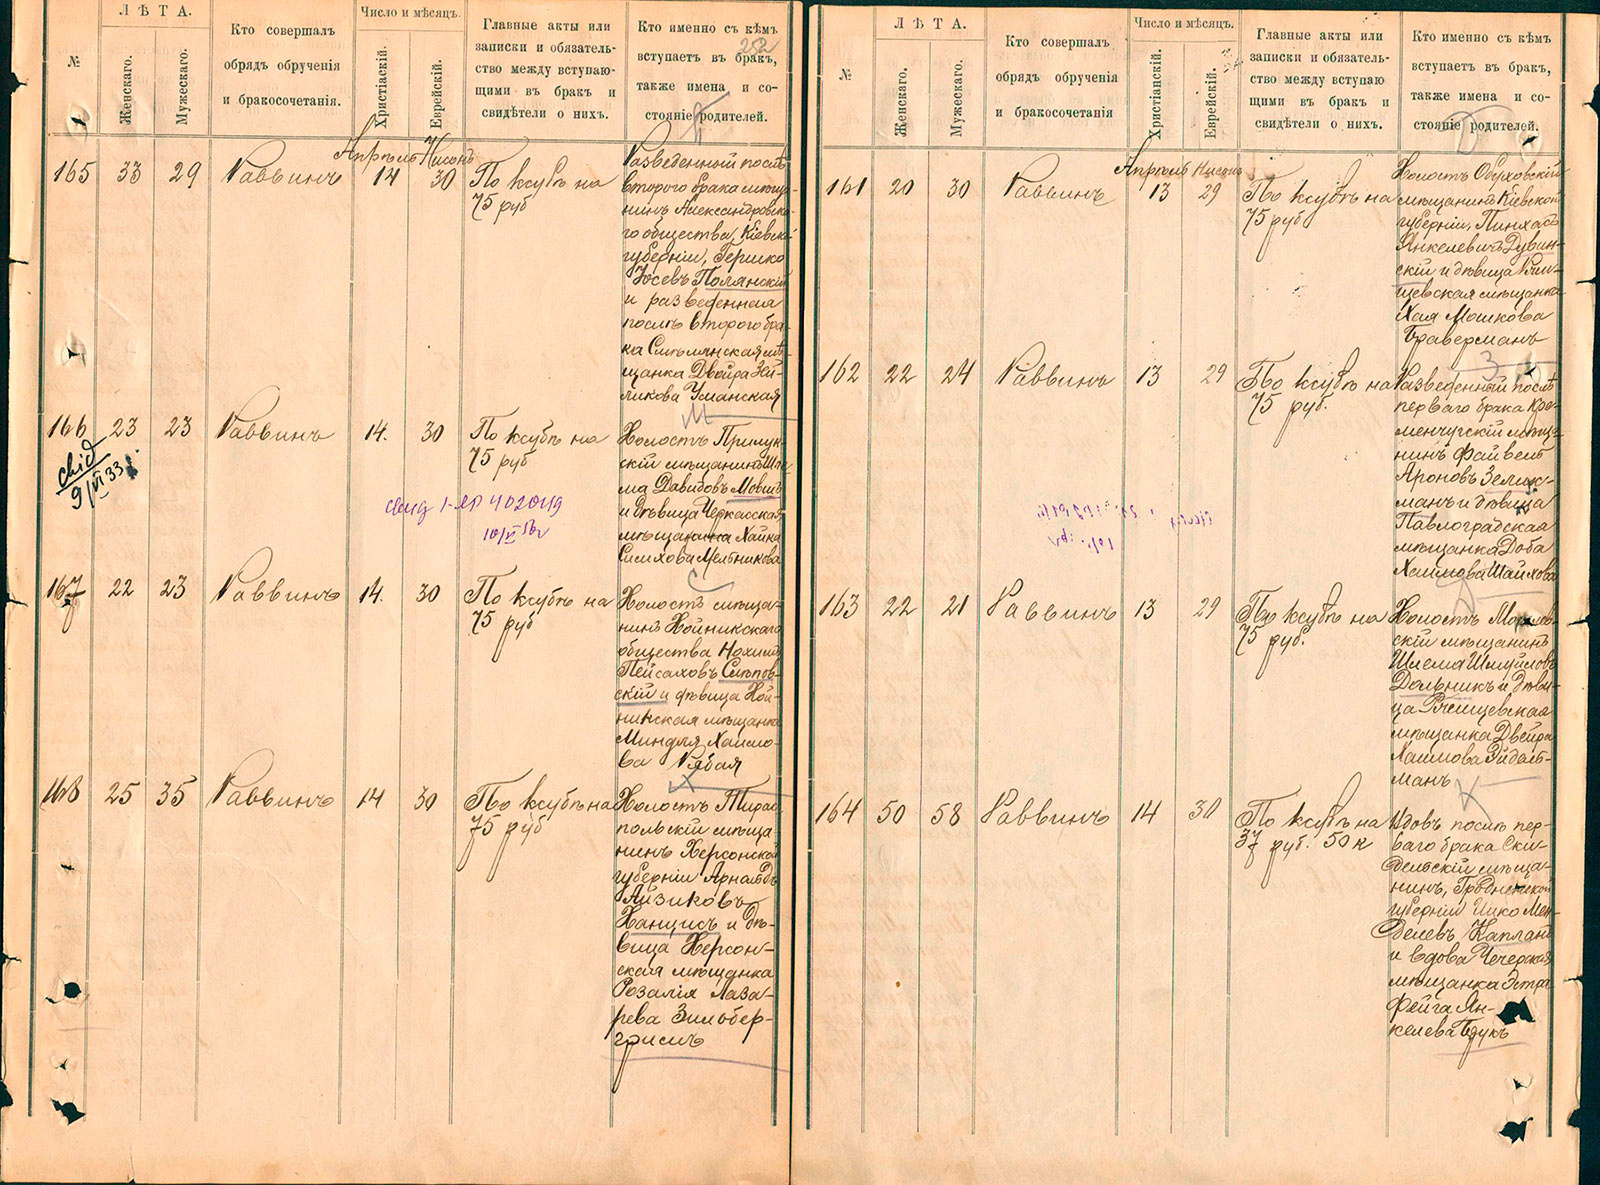 №
ЛѢТА.
Женскаго.
Мужескаго.
Кто совершалъ
обрядъ обрученія
и бракосочетанія.
Число и мѣсяцъ.
Христіаскій.
Еврейскій.
Главные акты или
записки и обязатель-
ство между вступаю-
щими въ бракъ и
свидѣтели о нихъ.
Кто именно съ кѣмъ
вступаетъ въ бракъ,
также имена и со-
стояніе родителей.
252
Апрѣль Нисонъ
165 33 29 Раввинъ 14 30 По ксубѣ на
75 руб
Разведенный послѣ
второго брака мѣща-
нинъ Александровска-
го общества, Кіевской
губерніи, Гершко
Іосевъ Полянскій
и разведенная
послѣ второго бра-
ка Смѣлянская мѣ-
щанка Двойра Зей-
ликова Уманская
166 23 23 Раввинъ 14. 30 По ксубѣ на
75 руб
М
Холостъ Прилук-
скій мѣщанинъ
Давидовъ Мовш
и дѣвица Черкасская
мѣщанка Хайка
Симхова Мельникова
9/VI 33
167 22 23 Раввинъ 14. 30 По ксубѣ на
75 руб
С
Холостъ мѣща-
нинъ Хойникскаго
общества Нохимъ
Пейсаховъ Слѣпов-
скій и дѣвица Хой-
никская мѣщанка
Миндля Хаимо-
ва Рябая
168 25 35 Раввинъ 14 30 По ксубѣ на
75 руб
Х
Холостъ Тирас
польскій мѣща-
нинъ Херсонской
губерніи Арнольдъ
Айзиковъ
Ханцисъ и дѣ-
вица Херсон-
ская мѣщанка
Розалія Лаза-
рева Зильбер-
грисмъ
№
ЛѢТА.
Женскаго.
Мужескаго.
Кто совершалъ
обрядъ обрученія
и бракосочетанія
Число и мѣсяцъ.
Христіанскій.
Еврейскій.
Главные акты или
записки и обязатель-
ство между вступаю
щими въ бракъ и
свидѣтели о нихъ.
Кто именно съ кѣмъ
вступаетъ въ бракъ,
также имена и со-
стояніе родителей.
Д
Апрѣль Нисонъ
161 20 30 Раввинъ 13 29 По ксубѣ на
75 руб
Холостъ Обуховскій
мѣщанинъ Кіевской
губерніи, Пинхасъ
Янкелевичъ Дувин-
скій и дѣвица Ржи-
щевская мѣщанка
Хая Мошкова
Браверманъ
162 22 24 Раввинъ 13 29 По ксубѣ на
75 руб.
З
Разведенный послѣ
перваго брака Кре-
менчугскій мѣща-
нинъ Файвель
Ароновъ Зелик-
манъ и дѣвица
Павлоградская
мѣщанка Доба
Хаимова Шайхова
163 22 21 Раввинъ 13 29 По ксубѣ на
75 руб.
Д
Холостъ Могилев-
скій мѣщанинъ
Шлема Шмуйловъ
Дольникъ и дѣви-
ца Ржищевская
мѣщанка Двейра
Хаимова Эйдель-
манъ
164 50 58 Раввинъ 14 30 По ксубѣ на
37 руб. 50 к
К
Вдовъ послѣ пер-
ваго брака Ски-
дельскій мѣща-
нинъ, Гродненской
губерніи Ицко Мен-
делевъ Капланъ
и вдова Чечерская
мѣщанка Эстръ
Фейга Ян-
келева Бдукъ